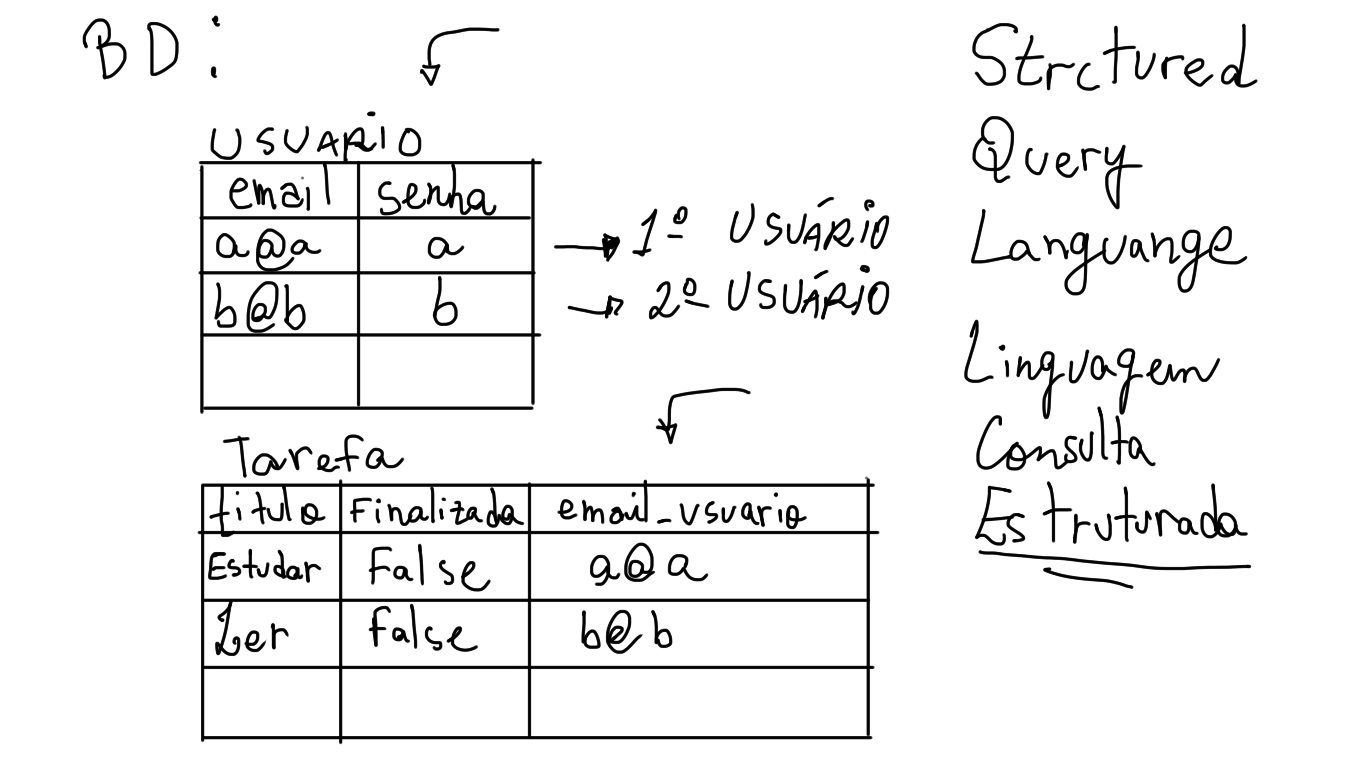 BD:
USUARIO
email senha
a@a a
b@b b
1º USUÁRIO
2º USUÁRIO
Tarefa
titulo Finalizada email_usuario
Estudar False a@a
Ler false b@b
Strctured
Query
Languange
Linguagem
Consulta
Estruturada